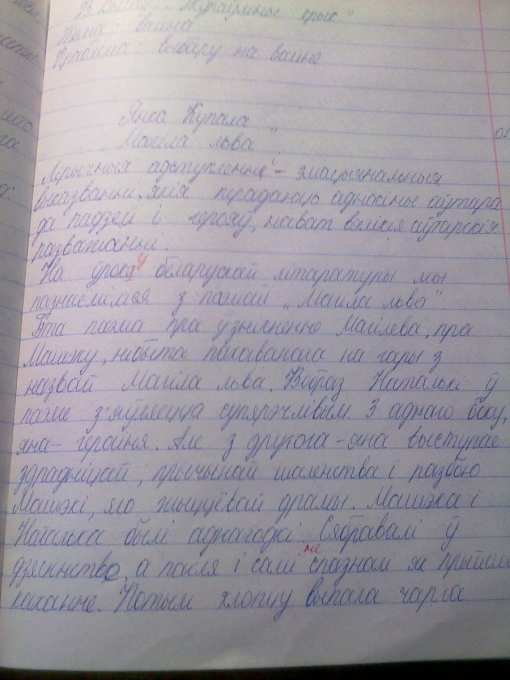 В. Быкаў „Жураўліны крык"
Тэма: вайна
Праблема: выбару на вайне
Янка Купала
„Магіла льва"
Лірычныя адступленні - эмацыянальныя
выказванні, якія перадаюць адносіны аўтара
да падзей і герояў, нават вялікія аўтарскія
разважанні.
На ўроку беларускай літаратуры мы
пазнаёміліся з паэмай „Магіла льва"
Гэта паэма пра ўзнікненне Магілева, пра
Машэку, нібыта пахаванага на гары з
назвай Магіла льва. Вобраз Наталькі ў
паэме з'яўляецца супярэчлівым. З аднаго боку,
яна - гераіня. Але з другога - яна выступае
здрадніцай, прычынай шаленства і разбою
Машэкі, яго жыццёвай драмы. Машэка і
Наталька былі аднагодкі. Сябравалі ў
дзяцінстве, а пасля і самі не спазналі як прыйшло
каханне. Потым хлопцу выпала чарга